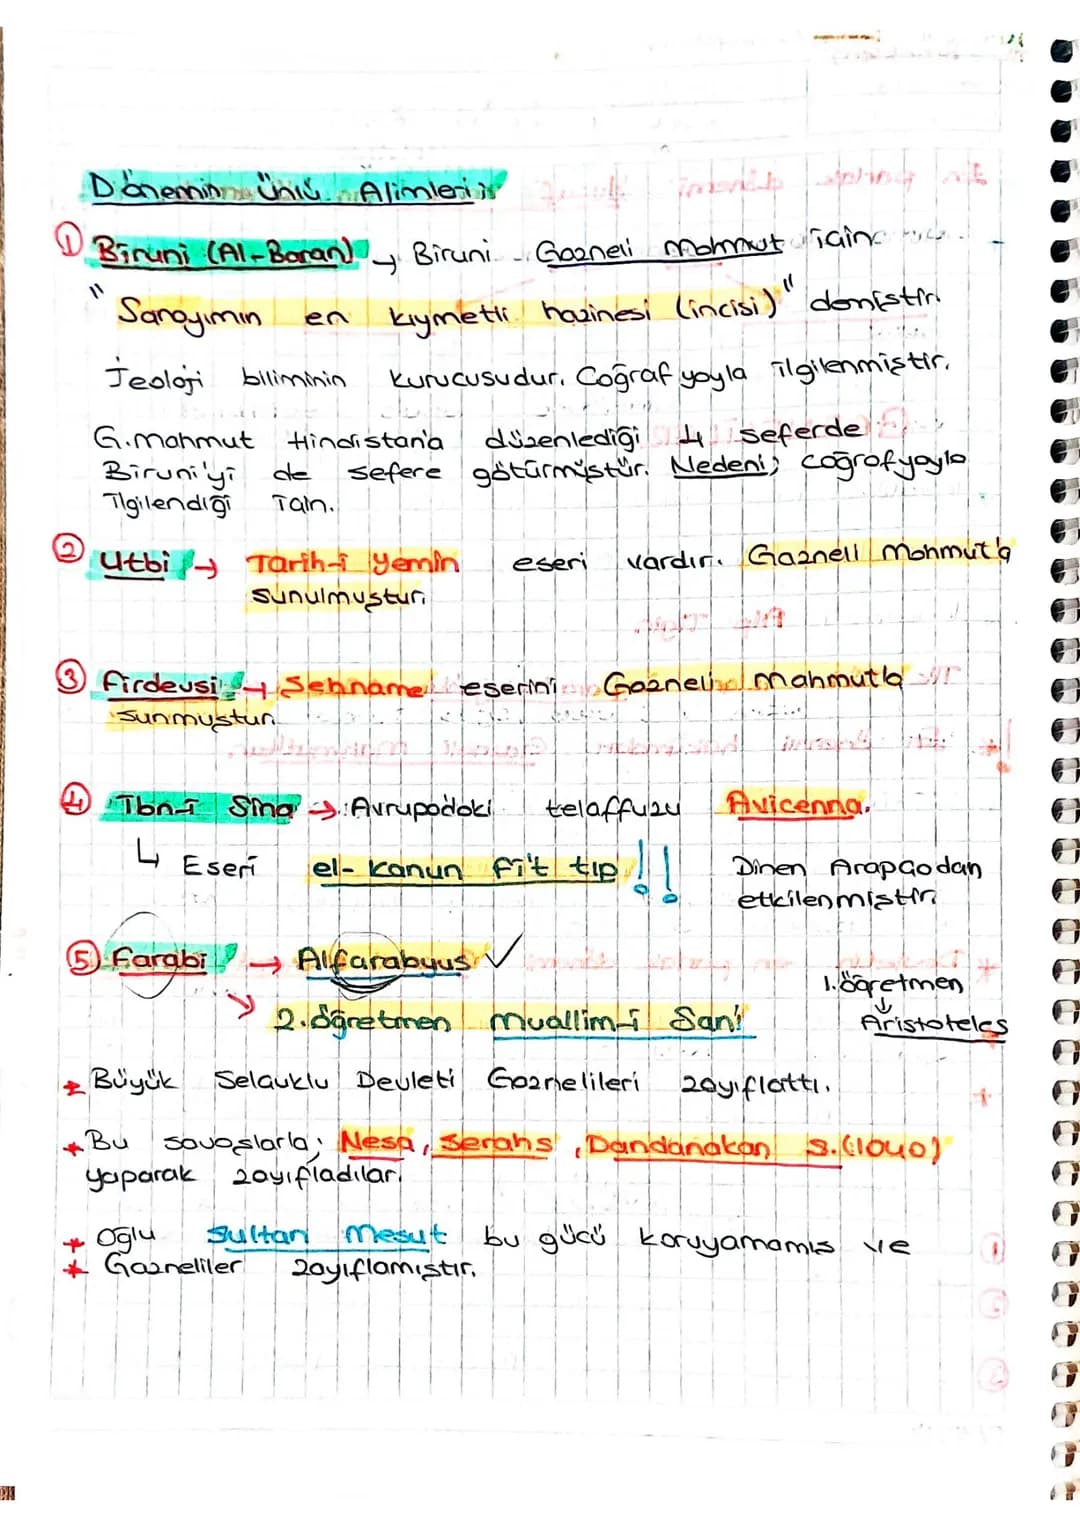 Dönemin Ünlü Alimleri:
① Biruni (Al-Baran) → Biruni Gazneli Mahmut için
"Sarayımın en kıymetli hazinesi (incisi)" demiştir.
Jeoloji biliminin kurucusudur. Coğrafyayla ilgilenmiştir.
G.mahmut Hindistan'a düzenlediği 4 seferde
Biruni'yi de sefere götürmüştür. Nedeni; coğrafyayla
ilgilendiği için.
② Utbi → Tarih-i Yemin eseri vardır. Gazneli Mahmut'a
sunulmuştur.
③ Firdevsi → Şehname eserini Gazneli Mahmut'a
sunmuştur.
④ İbn-i Sina → Avrupadaki telaffuzu Avicenna.
↳ Eseri el-kanun fi't tıp!! Dinen Arapçadan
etkilenmiştir.
⑤ Farabi → Alfarabyus ✓
1.öğretmen
↓
→ 2.öğretmen Muallim-i Sani Aristoteles
* Büyük Selçuklu Devleti Gaznelileri zayıflattı.
* Bu savaşlarla; Nesa, Serahs, Dandanakan S.(1040)
yaparak zayıfladılar.
* Oğlu Sultan Mesut bu gücü koruyamamış ve
* Gazneliler zayıflamıştır.